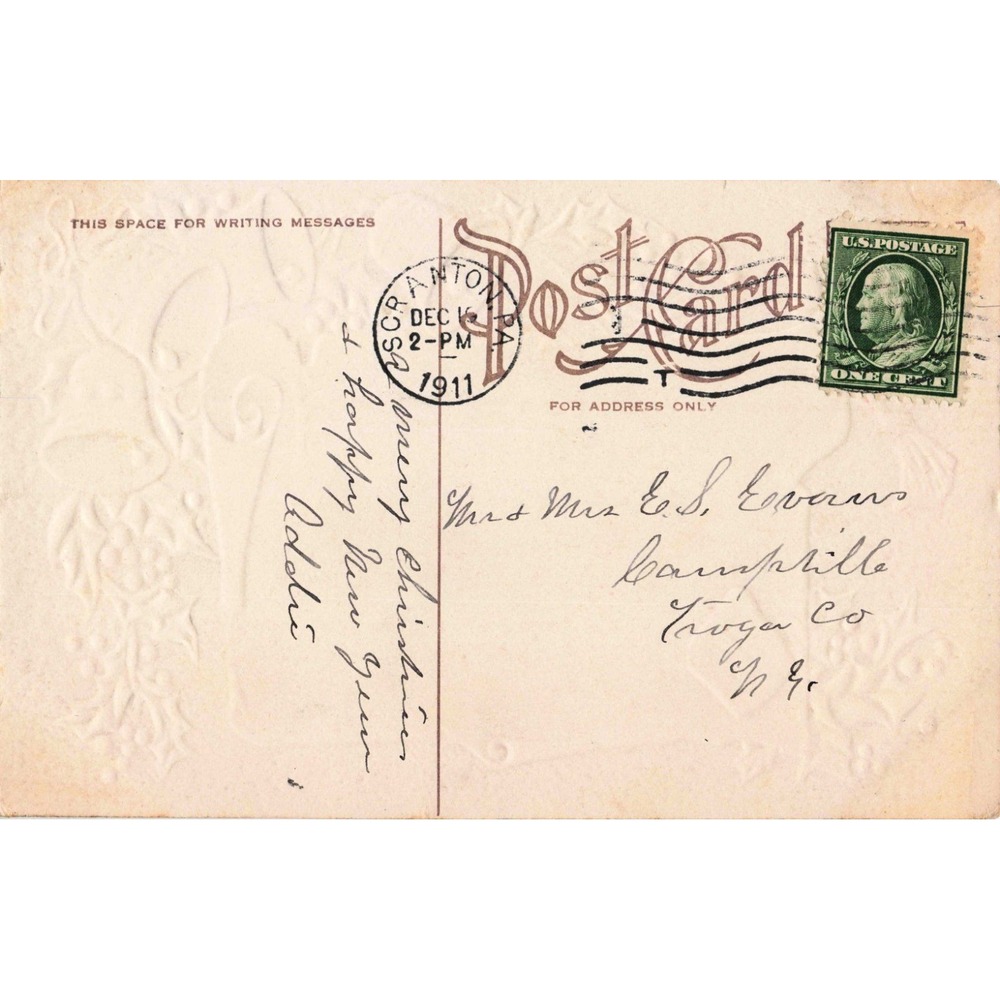 THIS SPACE FOR WRITING MESSAGES
Post Card
SCRANTON, PA
DEC
2-PM
1911
T
U.S. POSTAGE
ONE CENT
FOR ADDRESS ONLY
a merry christmas
& happy New Year
Addie
Mr & Mrs E. S. Evans
Campville
Tioga Co
N Y.